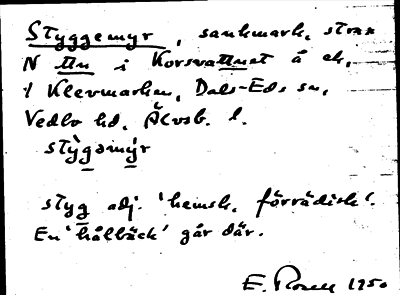 Styggemyr, sankmark, strax
N ttn i Korsvattnet å ek.
t Klevmarken, Dals-Eds sn,
Vedbo hd, Älvsb. l.
stỳgəmýr
styg adj. 'hemsk, förrädisk'.
En 'hålbäck' går där.
E. Rosell 1950